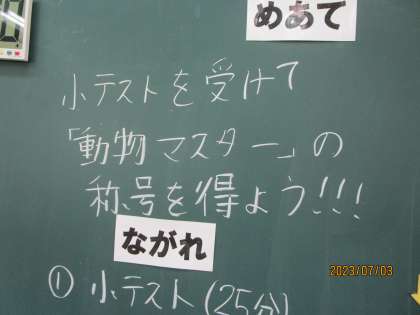 めあて
小テストを受けて
「動物マスター」の
称号を得よう!!!
ながれ
① 小テスト(25分)
2023/07/03